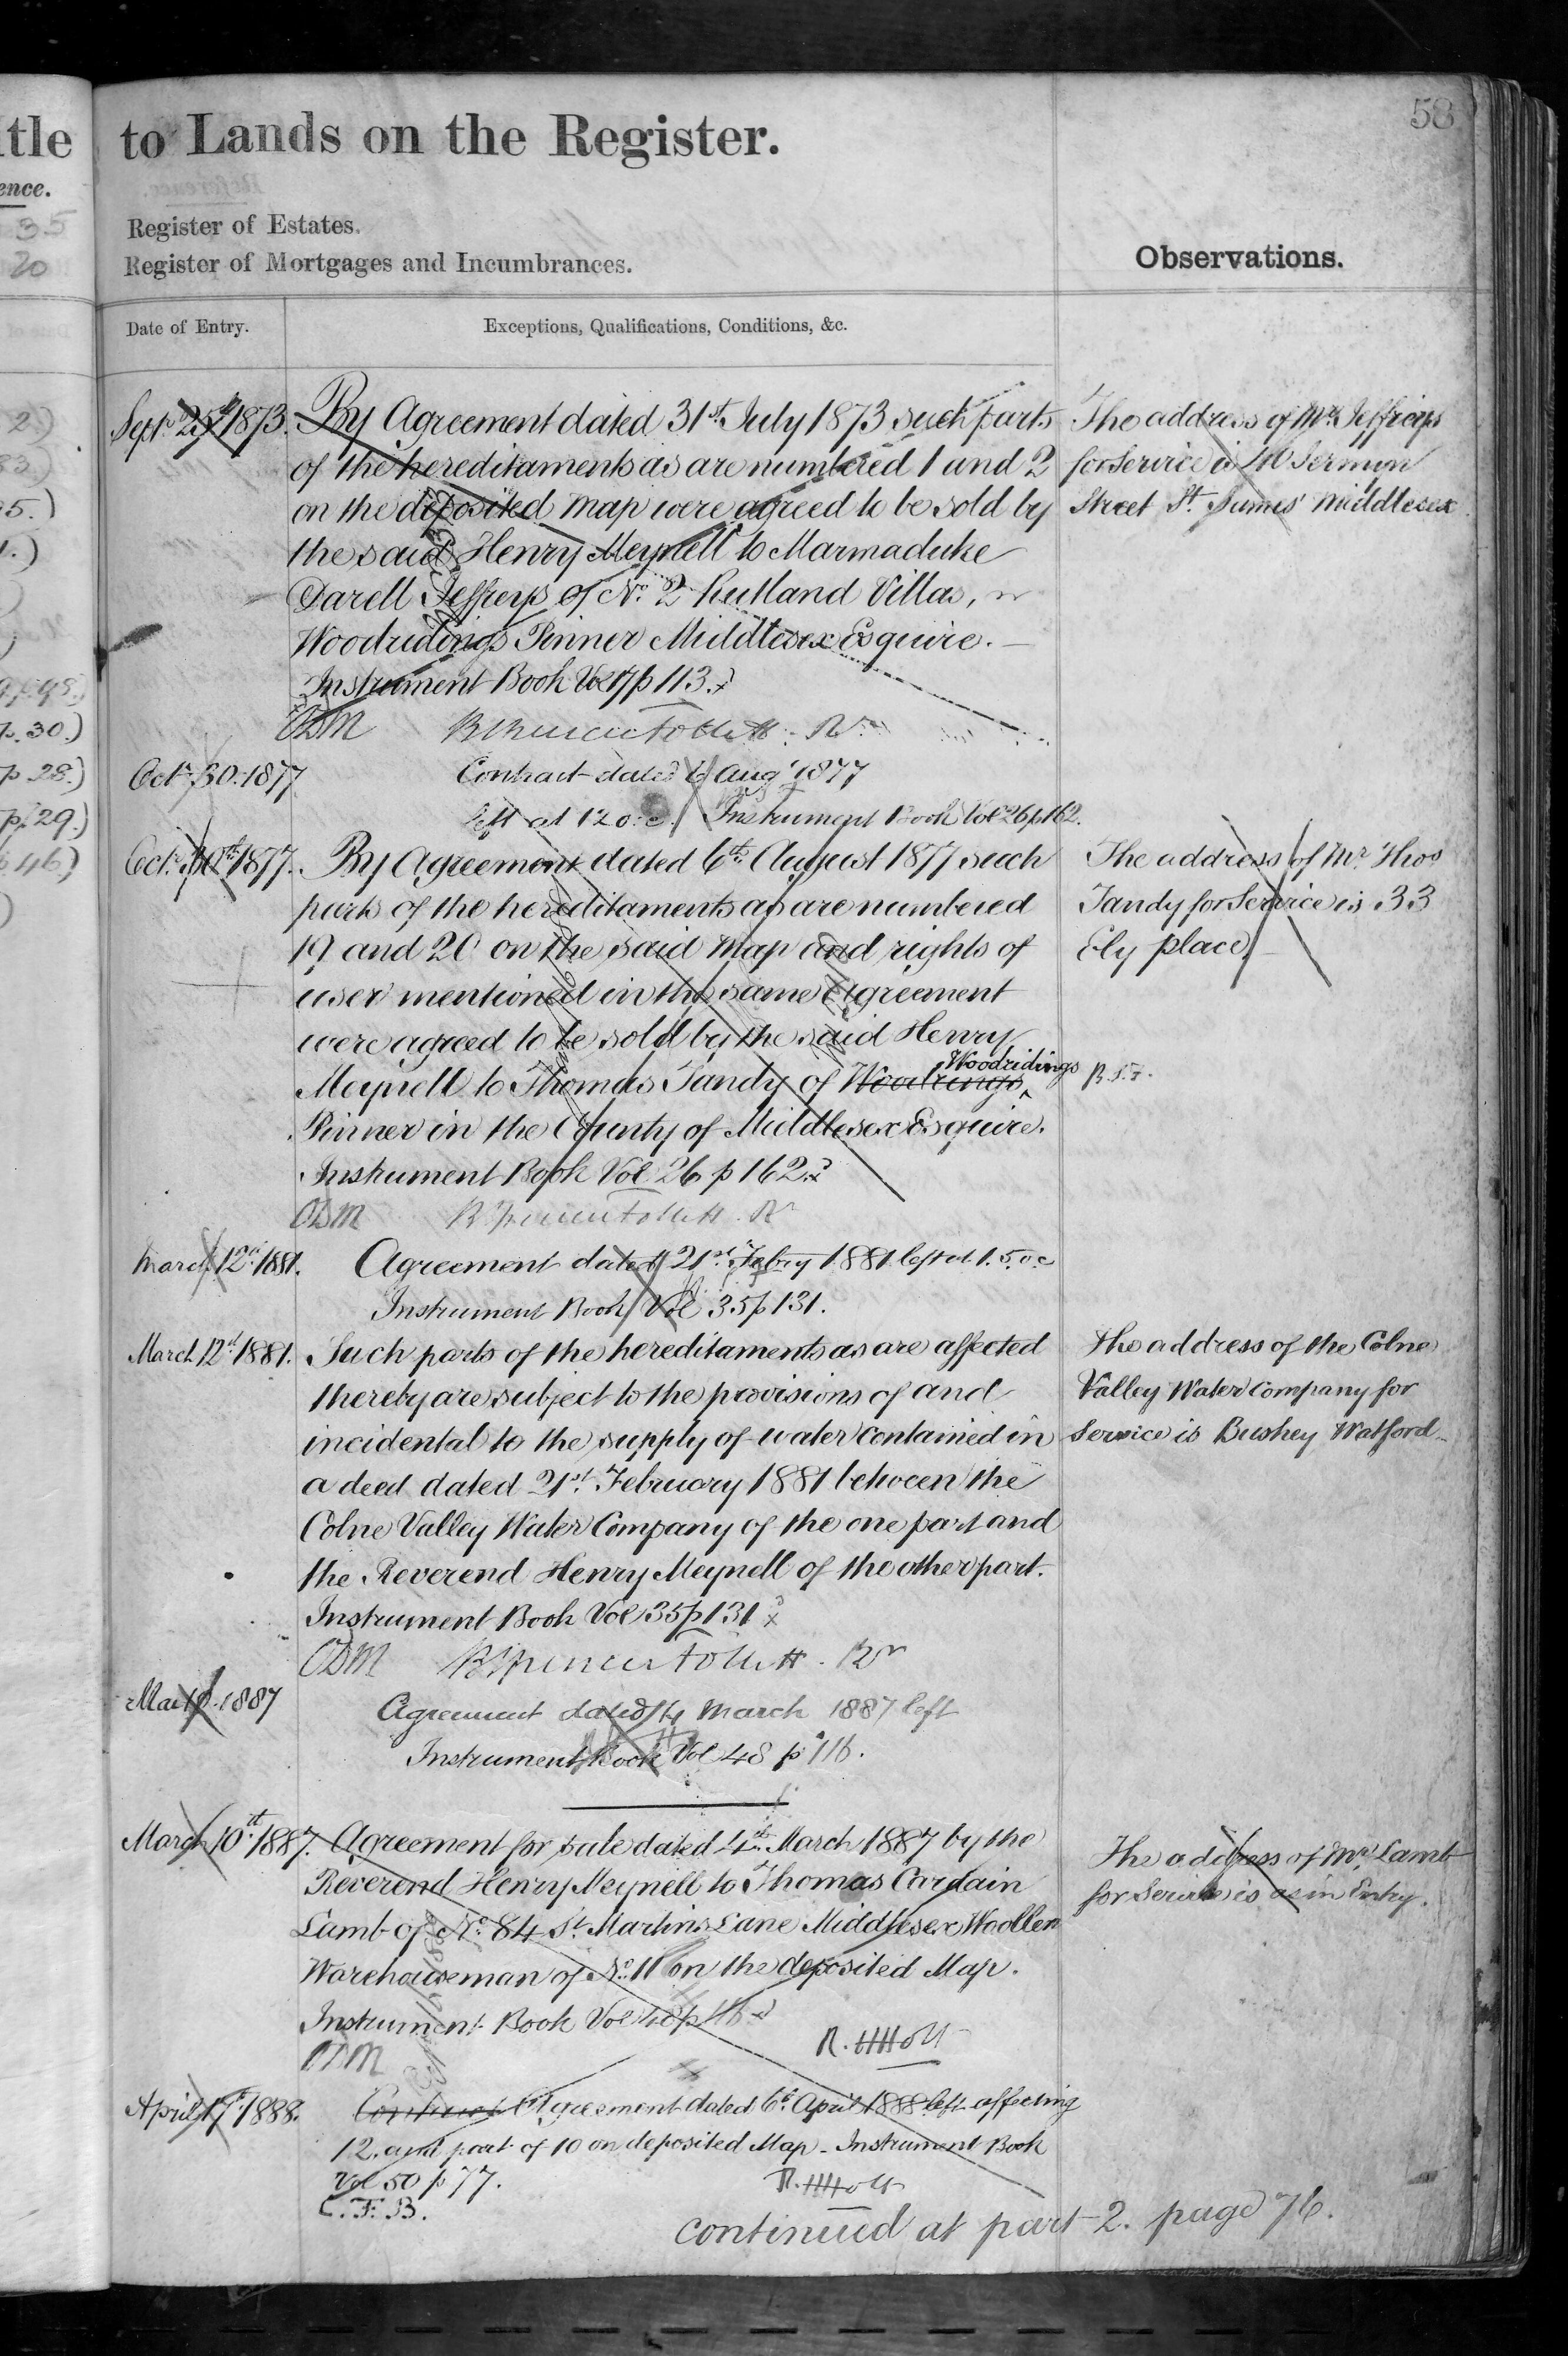 58
to Lands on the Register.
Register of Estates.
Register of Mortgages and Incumbrances.
Observations.
Date of Entry.
Exceptions, Qualifications, Conditions, &c.
Sept. 25th 1873.
By Agreement dated 31st July 1873 such parts
of the hereditaments as are numbered 1 and 2
on the deposited map were agreed to be sold by
the said Henry Meynell to Marmaduke
Darell Jeffreys of No. 2 Rutland Villas,
Woodridings Pinner Middlesex Esquire.
Instrument Book Vol 17 p 113.
The address of Mr. Jeffreys
for Service is 40 Jermyn
Street St. James' Middlesex
ODM
Oct. 30. 1877
Contract dated 6 Aug 1877
left at 12 o.c. Instrument Book Vol 26 p 162.
Oct. 30th 1877.
By Agreement dated 6th August 1877 such
parts of the hereditaments as are numbered
19 and 20 on the said map and rights of
user mentioned in the same Agreement
were agreed to be sold by the said Henry
Meynell to Thomas Tandy of Woodrings Woodridings
Pinner in the County of Middlesex Esquire.
Instrument Book Vol 26 p 162.
The address of Mr. Thos
Tandy for Service is 33
Ely place.
ODM
March 12th 1881.
Agreement dated 21st Febry 1881 left at 1.5 o.c
Instrument Book Vol 35 p 131.
March 12th 1881.
Such parts of the hereditaments as are affected
thereby are subject to the provisions of and
incidental to the supply of water contained in
a deed dated 21st February 1881 between the
Colne Valley Water Company of the one part and
the Reverend Henry Meynell of the other part.
Instrument Book Vol 35 p 131
The address of the Colne
Valley Water Company for
Service is Bushey Watford
ODM
Mar 10. 1887
Agreement dated 4 March 1887 left
Instrument Book Vol 48 p 116.
March 10th 1887.
Agreement for sale dated 4th March 1887 by the
Reverend Henry Meynell to Thomas
Lamb of No. 84 St. Martins Lane Middlesex Woollen
Warehouseman of No. 11 on the deposited Map.
Instrument Book Vol 48 p 116
The address of Mr. Lamb
for Service is as in Entry.
ODM
R. H Holt
April 17th 1888.
Contract Agreement dated 6th April 1888 left affecting
12. and part of 10 on deposited Map - Instrument Book
Vol 50 p 77.
R. H Holt
C. F. B.
continued at part 2. page 76.